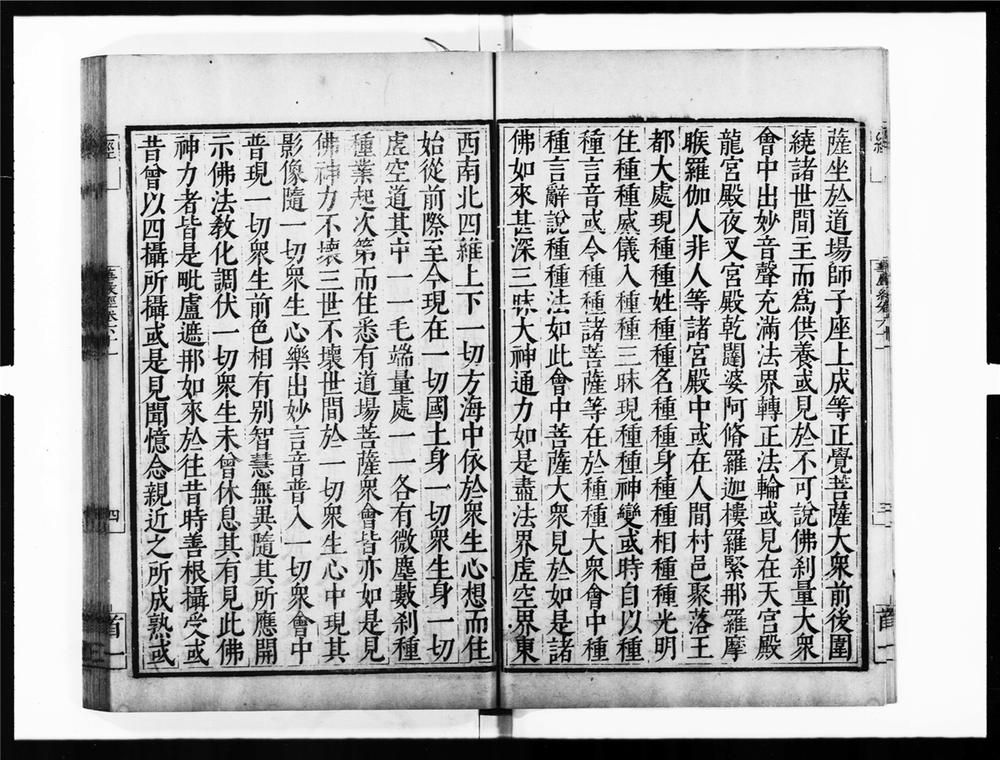 薩坐於道場師子座上成等正覺菩薩大衆前後圍
繞諸世間主而爲供養或見於不可說佛刹量大衆
會中出妙音聲充滿法界轉正法輪或見在天宮殿
龍宮殿夜叉宮殿乾闥婆阿脩羅迦樓羅緊那羅摩
睺羅伽人非人等諸宮殿中或在人間村邑聚落王
都大處現種種姓種種名種種身種種相種種光明
住種種威儀入種種三昧現種種神變或時自以種
種言音或令種種諸菩薩等在於種種大衆會中種
種言辭說種種法如此會中菩薩大衆見於如是諸
佛如來甚深三昧大神通力如是盡法界虛空界東
西南北四維上下一切方海中依於衆生心想而住
始從前際至今現在一切國土身一切衆生身一切
虛空道其中一一毛端量處一一各有微塵數刹種
種業起次第而住悉有道場菩薩衆會皆亦如是見
佛神力不壞三世不壞世間於一切衆生心中現其
影像隨一切衆生心樂出妙言音普入一切衆會中
普現一切衆生前色相有别智慧無異隨其所應開
示佛法教化調伏一切衆生未曾休息其有見此佛
神力者皆是毗盧遮那如來於往昔時善根攝受或
昔曾以四攝所攝或是見聞憶念親近之所成熟或